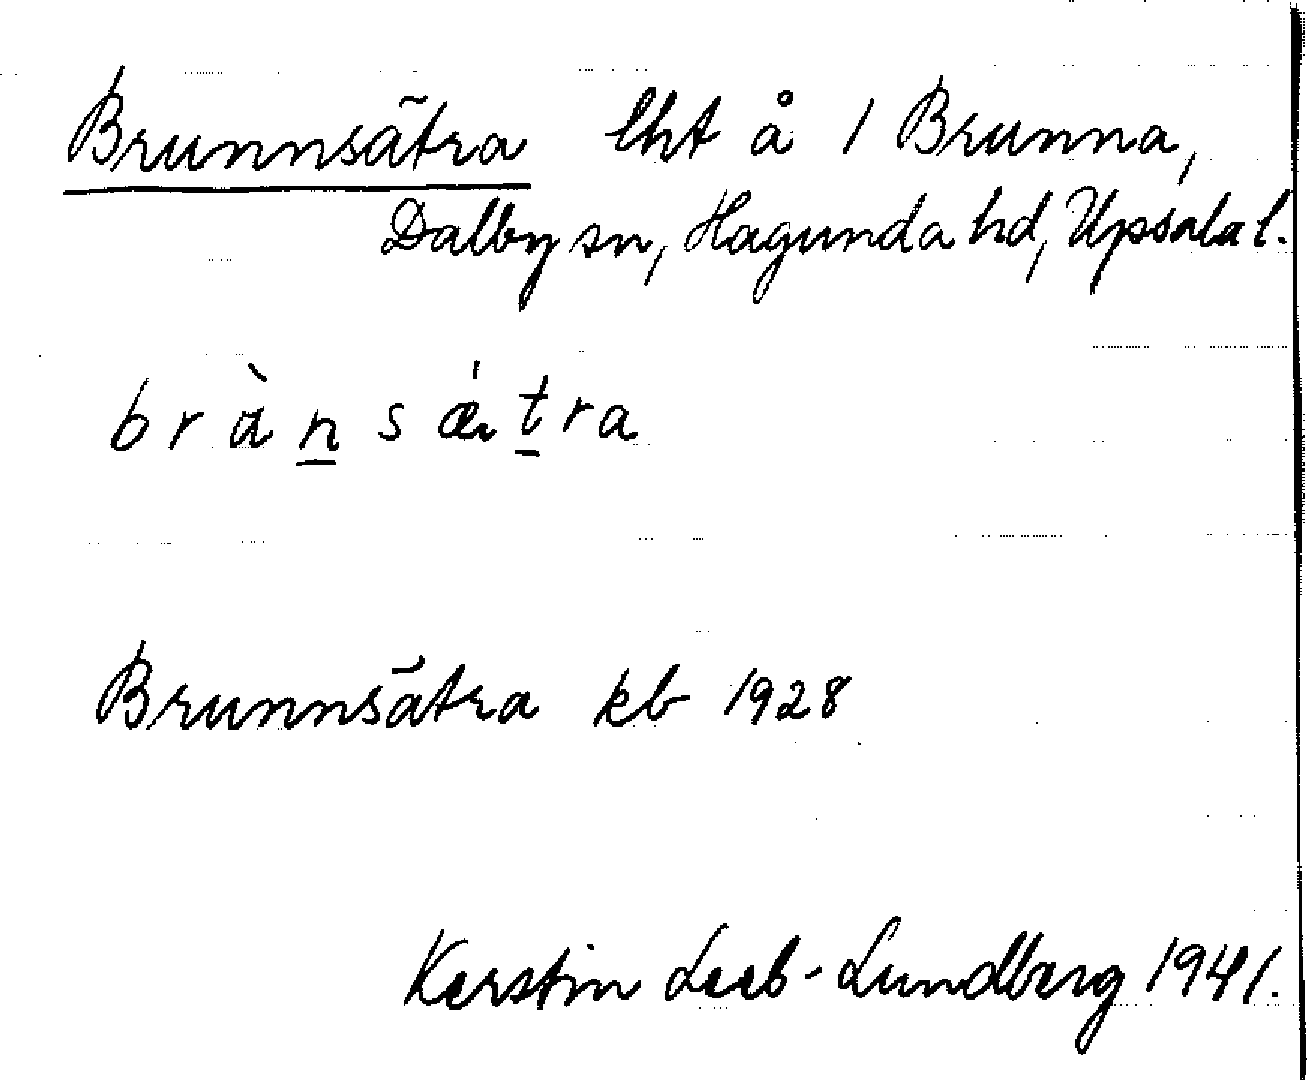 Brunnsätra lht å 1 Brunna,
Dalby sn, Hagunda hd, Upsala l.
brànsǽtra
Brunnsätra kb 1928
Kerstin Leeb-Lundberg 1941.